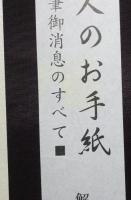 人のお手紙
筆御消息のすべて■
解